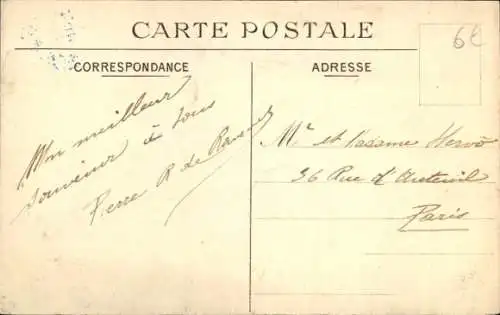 CARTE POSTALE
CORRESPONDANCE
ADRESSE
6E
Mon meilleur
souvenir à tous
Pierre R de
Mr et Madame Hervo
36 Rue d'Auteuil
Paris